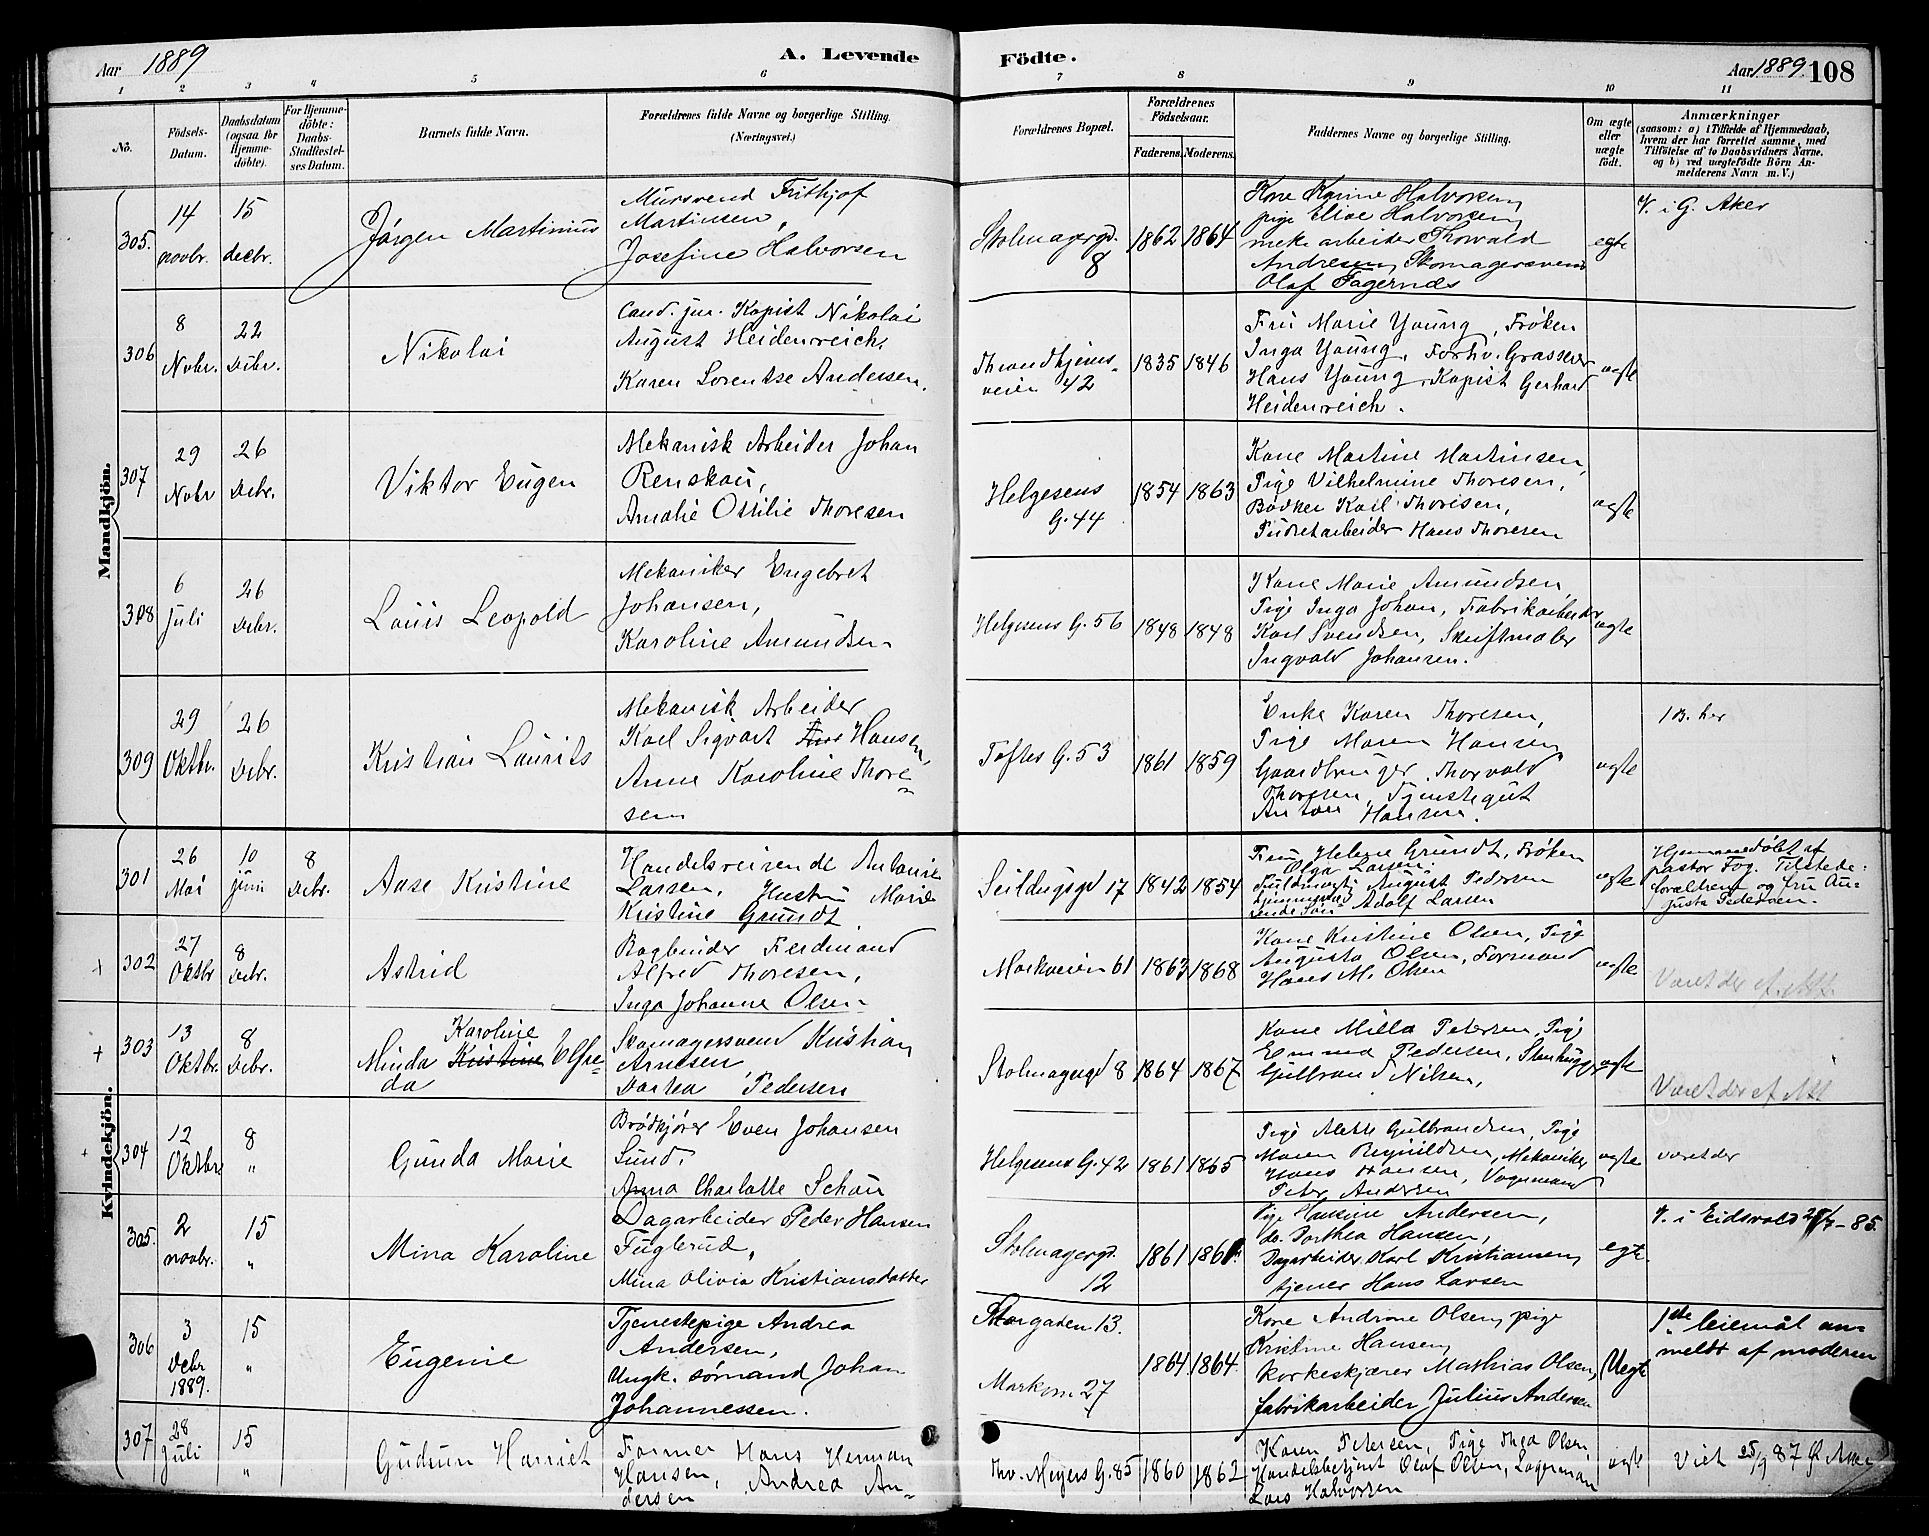 Aar 1889
A. Levende
Födte.
Aar 1889 108
1 2 3 4 5 6 7 8 9 10 11
No.
Födsels-
Datum.
Daabsdatum
(ogsaa for
Hjemme-
döbte).
For Hjemme-
döbte:
Daabs-
Stadfæstel-
ses Datum.
Barnets fulde Navn.
Forældrenes fulde Navne og borgerlige Stilling.
(Næringsvei.)
Forældrenes Bopæl.
Forældrenes
Födselsaar.
Faderens. Moderens.
Faddernes Navne og borgerlige Stilling.
Om ægte
eller
uægte
födt.
Anmærkninger
(saasom: a) i Tilfælde af Hjemmedaab,
hvem der har forrettet samme, med
Tilföielse af to Daabsvidners Navne,
og b) ved uægtefödte Börn An-
melderens Navn m. V.)
Mandkjön.
305.
14
novbr.
15
decbr.
Jörgen Martinius
Mursvend Frithjof
Martinsen,
Josefine Halvorsen
Stolmagergd.
8
1862 1864
Kone Karine Halvorsen,
pige Elise Halvorsen,
mek. arbeider Thorvald
Andresen, Skomagersvend
Olaf Fagernæs
egte
V. i G. Aker
306
8
Novbr.
22
Debr.
Nikolai
Cand. jur. Kopist Nikolai
August Heidenreich,
Karen Lorentse Andersen.
Throndhjems-
veien 42
1835 1846
Fru Marie Young, Frøken
Inga Young, Forhv. Grosserer
Hans Young, Kopist Gerhard
Heidenreich.
ægte
307
29
Novbr
26
Debr.
Viktor Eugen
Mekanisk Arbeider Johan
Renskou,
Amalie Ottilie Thoresen
Helgesens
G. 44
1854 1863
Kone Martine Martinsen,
Pige Vilhelmine Thoresen,
Bødker Karl Thoresen,
Pudretarbeider Hans Thoresen
ægte
308
6
Juli
26
Debr.
Louis Leopold
Mekaniker Engebret
Johansen,
Karoline Amundsen
Helgesens G. 56
1848 1848
Kone Marie Amundsen,
Pige Inga Johan, Fabrikarbeider
Karl Svendsen, Skiftmaler
Ingvald Johansen.
ægte
309
29
Oktbr.
26
Debr.
Kristian Laurits
Mekanisk Arbeider
Karl Sigvart Hansen,
Anne Karoline Thore-
sen
Toftes G. 53
1861 1859
Enke Karen Thoresen,
Pige Maren Hansen
Gaardbruger Thorvald
Thoresen, Tjenstegut
Anton Hansen.
ægte
1 B. her
Kvindekjön.
301
26
Mai
10
Juni
8
Debr.
Aase Kristine
Handelsreisende Antonie
Larsen, Hustru Marie
Kristine Grundt
Seildugsgd 17
1842 1854
Fru Helene Grundt, Frøken
Olga Larsen.
Fuldmægt. August Pedersen
Adolf Larsen
ægte
Hjemmedøbt af
pastor Fog. Tilstede:
forældrene og fru Au-
gusta Pedersen.
+ 302
27
Oktbr
8
Debr.
Astrid
Bogbinder Ferdinand
Alfred Thoresen,
Inga Johanne Olsen
Markveien 61
1863 1868
Kone Kristine Olsen, Pige
Augusta Olsen, Formand
Hans M. Olsen
ægte
Været der
+ 303
13
Oktbr.
8
Debr.
Karoline
Minda Kristine Elfre-
da
Skomagersvend Kristian
Arnesen,
Dorthea Pedersen
Stolmagergd 8
1864 1867
Kone Milla Petersen, Pige
Emma Pedersen, Stenhugger
Gulbrand Nilsen,
ægte
Været der
+ 304
12
Oktbr
8
"
Gunda Marie
Brødkjører Even Johansen
Lund,
Anna Charlotte Schau
Helgesens G. 42
1861 1865
Pige Mette Gulbrandsen, Pige
Maren Reynildsen, Mekaniker
Hans Hansen, Vognmand
Peter Andersen
ægte
været der
305.
2
novbr.
15
"
Mina Karoline
Dagarbeider Peder Hansen
Fuglerud,
Mina Olivia Kristiansdatter
Stolmagergd.
12
1861 1861
Pige Hansine Andersen,
do. Dorthea Hansen,
Dagarbeider Karl Kristiansen,
tjener Hans Larsen
egte.
V. i Eidsvold - 85.
306
3
Debr
1889.
15
"
Eugenie
Tjenestepige Andrea
Andersen,
Ungk. sømand Johan
Johannessen.
Storgaden 13.
Markvn 27
1864. 1864.
Kone Andrine Olsen, pige
Kristine Hansen,
korkeskjærer Mathias Olsen,
fabrikarbeider Julius Andersen
Uegte
1ste leiemål an-
meldt af moderen
307
28
Juli
15
"
Gudrun Harriet
Former Hans Herman
Hansen, Andrea An-
dersen
Thv. Meyers G. 85
1860 1862
Karen Petersen, Pige Inga Olsen
Handelsbetjent Olaf Olsen, Lagermand
Lars Halvorsen
ægte
Viet 25/9 87 G. Aker